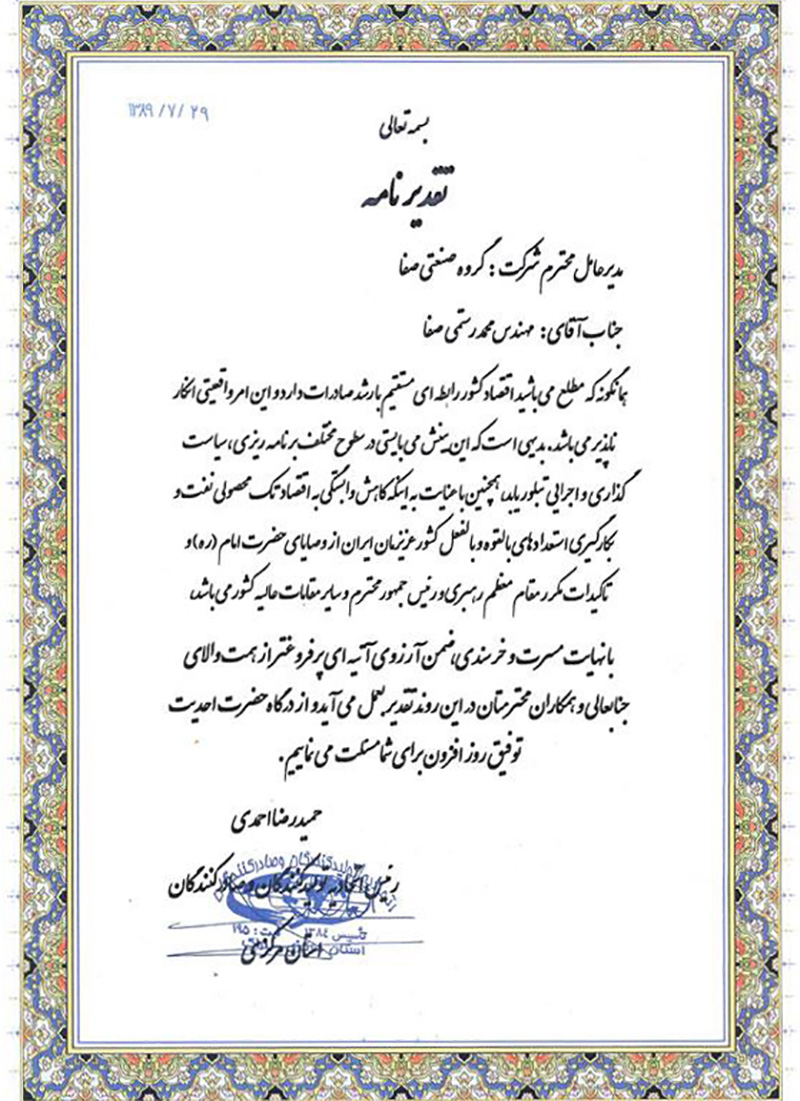 ۱۳۸۹/۷/۲۹
بسمه تعالی
تقدیرنامه
مدیرعامل محترم شرکت : گروه صنعتی صفا
جناب آقای : مهندس محمد رستمی صفا
همانگونه که مطلع می باشید اقتصاد کشور رابطه ای مستقیم با رشد صادرات دارد و این امر واقعیتی انکار
ناپذیر می باشد. بدیهی است که این بینش می بایستی در سطوح مختلف برنامه ریزی، سیاست
گذاری و اجرایی تبلور یابد، همچنین با عنایت به اینکه کاهش وابستگی به اقتصاد تک محصولی نفت و
بکارگیری استعدادهای بالقوه و بالفعل کشور عزیزمان ایران از وصایای حضرت امام (ره) و
تاکیدات مکرر مقام معظم رهبری و رئیس جمهور محترم و سایر مقامات عالیه کشور می باشد،
با نهایت مسرت و خرسندی، ضمن آرزوی آتیه ای پر فروغتر از همت والای
جنابعالی و همکاران محترمتان در این روند تقدیر بعمل می آید و از درگاه حضرت احدیت
توفیق روز افزون برای شما مسئلت می نماییم.
حمیدرضا احمدی
رئیس اتحادیه تولیدکنندگان و صادرکنندگان
استان مرکزی
تولیدکنندگان و صادرکنندگان
تأسیس ۱۳۸۴ ثبت : ۱۹۵
استان